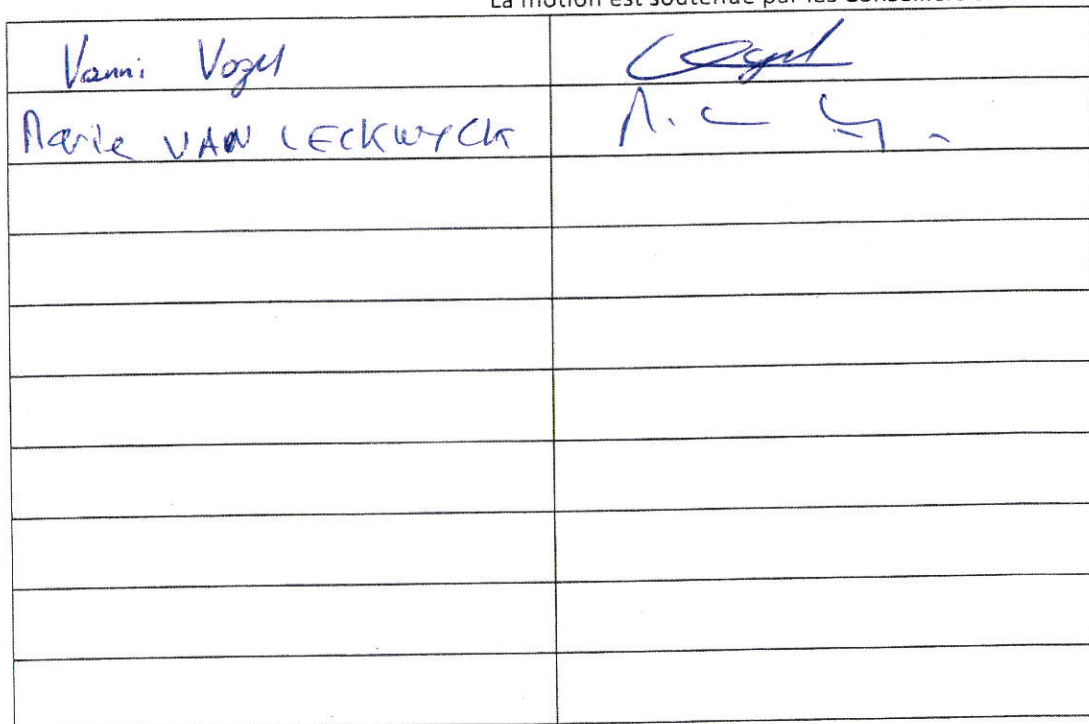 La motion est soutenue par les Conseillers
Vanni Vogel
Marie VAN LECKWYCK